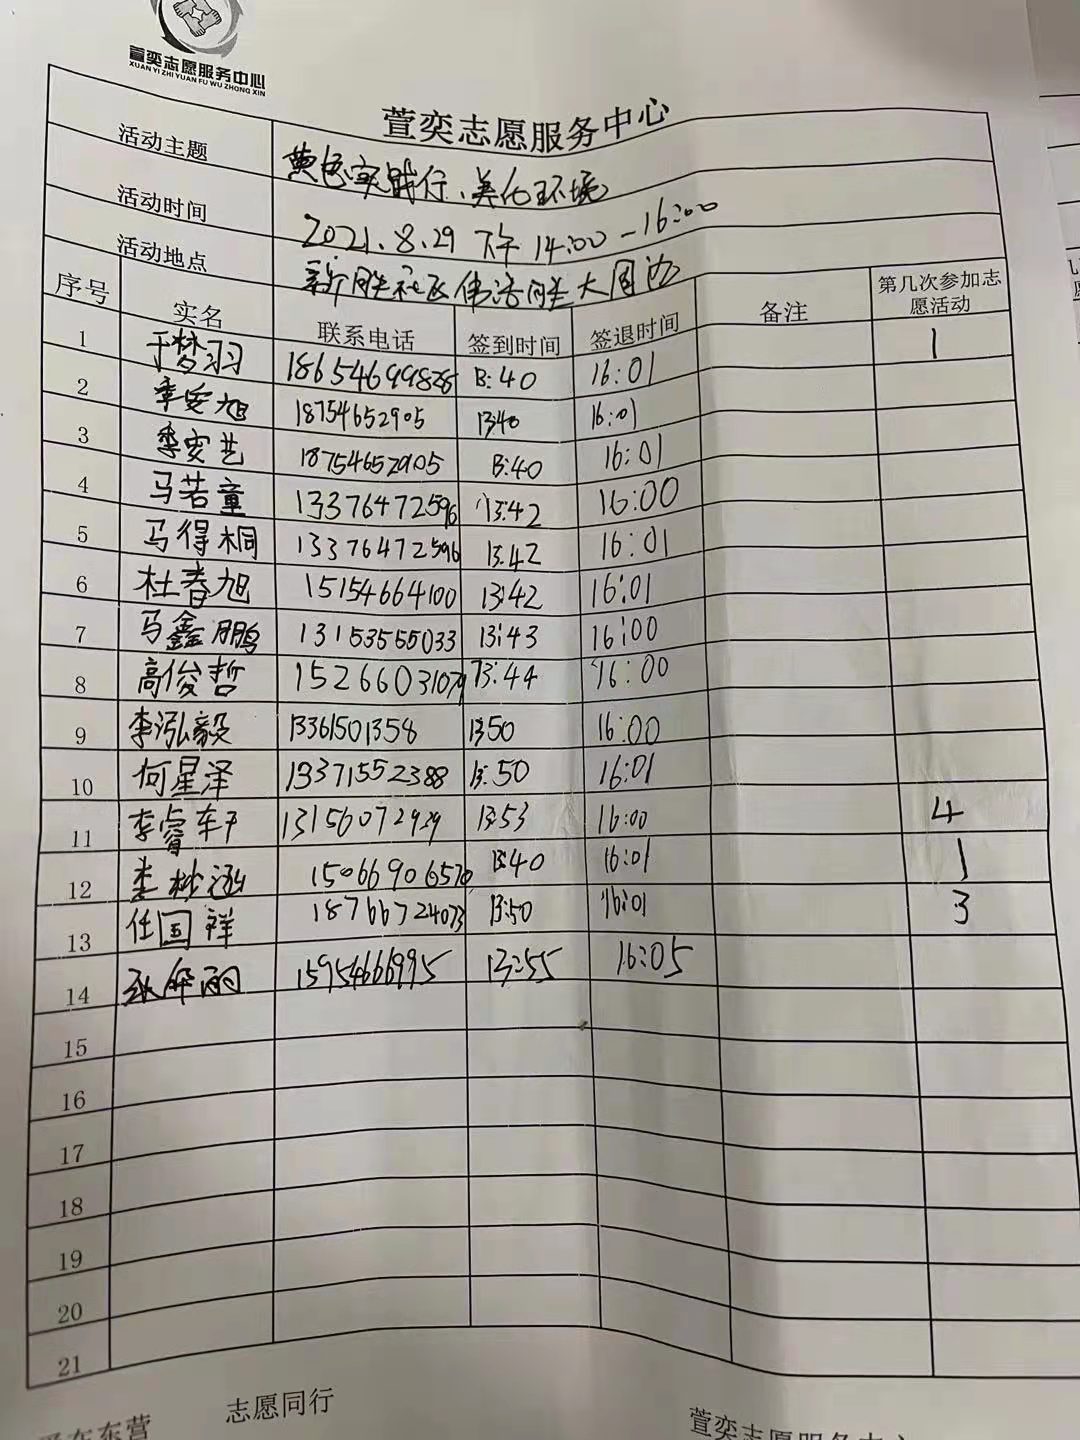 萱奕志愿服务中心
XUAN YI ZHI YUAN FU WU ZHONG XIN
萱奕志愿服务中心
活动主题 黄色实践行、美化环境
活动时间 2021.8.29 下午 14:00-16:00
活动地点 新胜社区伟浩胜大周边
序号 实名 联系电话 签到时间 签退时间 备注 第几次参加志愿活动
1 于梦羽 18654699828 13:40 16:01 1
2 李安旭 18754652905 13:40 16:01
3 李安艺 18754652905 13:40 16:01
4 马若童 13376472596 13:42 16:00
5 马得桐 13376472596 13:42 16:01
6 杜春旭 15154664100 13:42 16:01
7 马鑫鹏 13153555033 13:43 16:00
8 高俊哲 15266031079 13:44 16:00
9 李泓毅 13361501358 13:50 16:00
10 何星泽 13371552388 13:50 16:01
11 李睿轩 13156072929 13:53 16:00 4
12 李梦涵 15066906570 13:40 16:01 1
13 任国祥 18766724073 13:50 16:01 3
14 15954666995 13:55 16:05
15
16
17
18
19
20
21
爱在东营 志愿同行 萱奕志愿服务中心